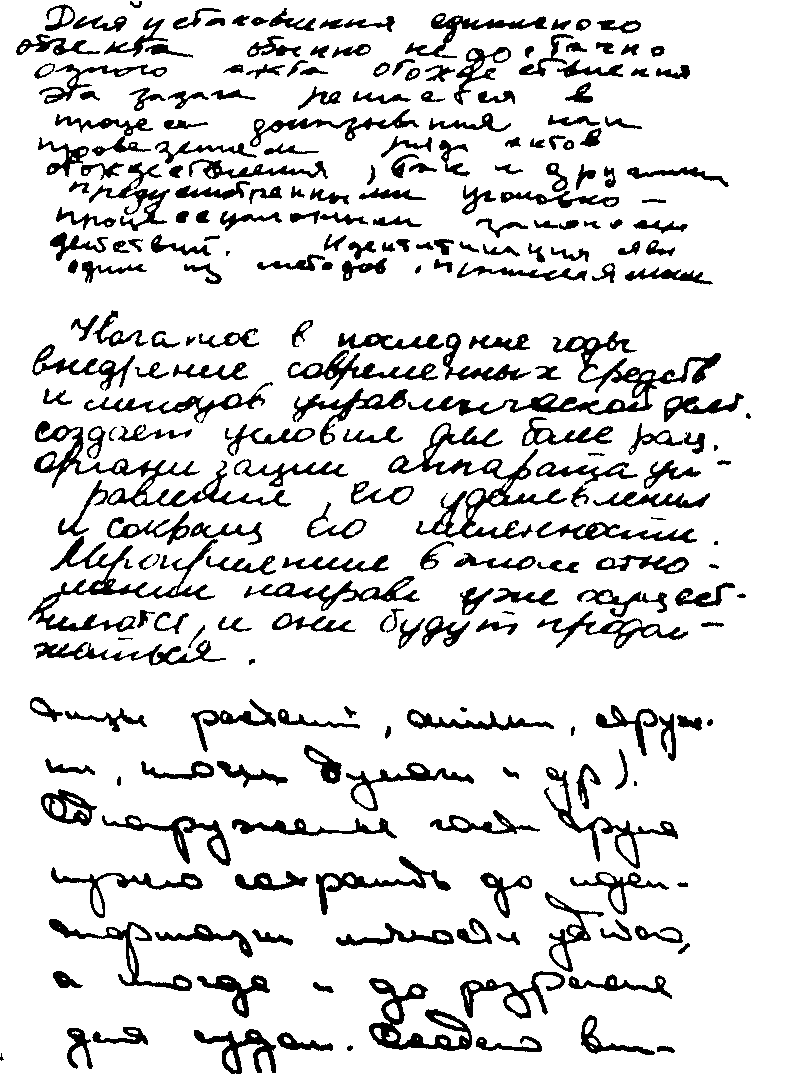 Для установления единичного
объекта обычно недостаточно
одного акта отождествления
эта задача решается в
процессе доказывания как
проведением ряда актов
отождествления, так и другими
предусмотренными уголовно-
процессуальным законом
действий. Идентификация явл
один из методов,
в последние годы
внедрение современных средств
и методов управленческой деят.
создает условия для более рац.
организации аппарата уп-
равления, его удешевления
и сокращ его численности.
Мероприятие в этом отно-
шении направл уже осущест-
вляются, и они будут продол-
жаться.
растений, опилки, струж-
ки, клочки бумаги и др).
Обнаруженные части трупа
нужно сохранить до иден-
личности убитого,
а иногда и до разрешения
дела судом.